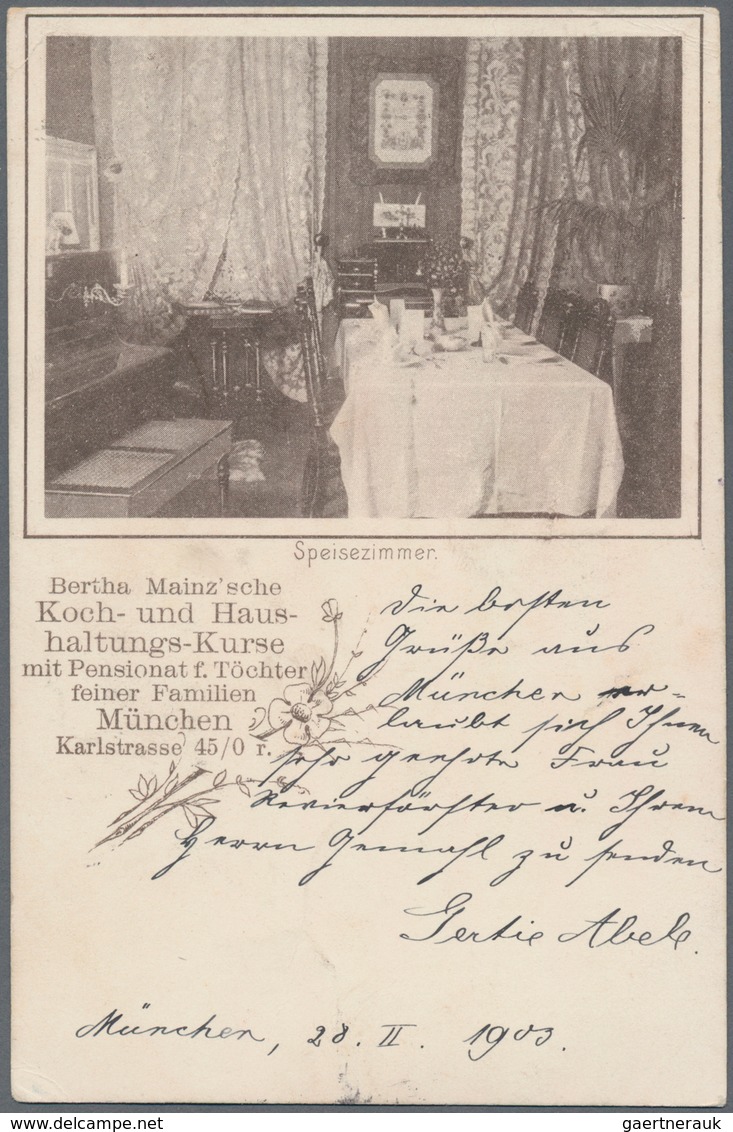 Speisezimmer.
Bertha Mainz'sche
Koch- und Haus-
haltungs-Kurse
mit Pensionat f. Töchter
feiner Familien
München
Karlstrasse 45/0 r.
Die besten
Grüße aus
München er-
laubt sich Ihnen
sehr geehrte Frau
Revierförster u. Ihrem
Herrn Gemahl zu senden
Gertie Abele.
München, 28. II. 1903.
gaertnerauk